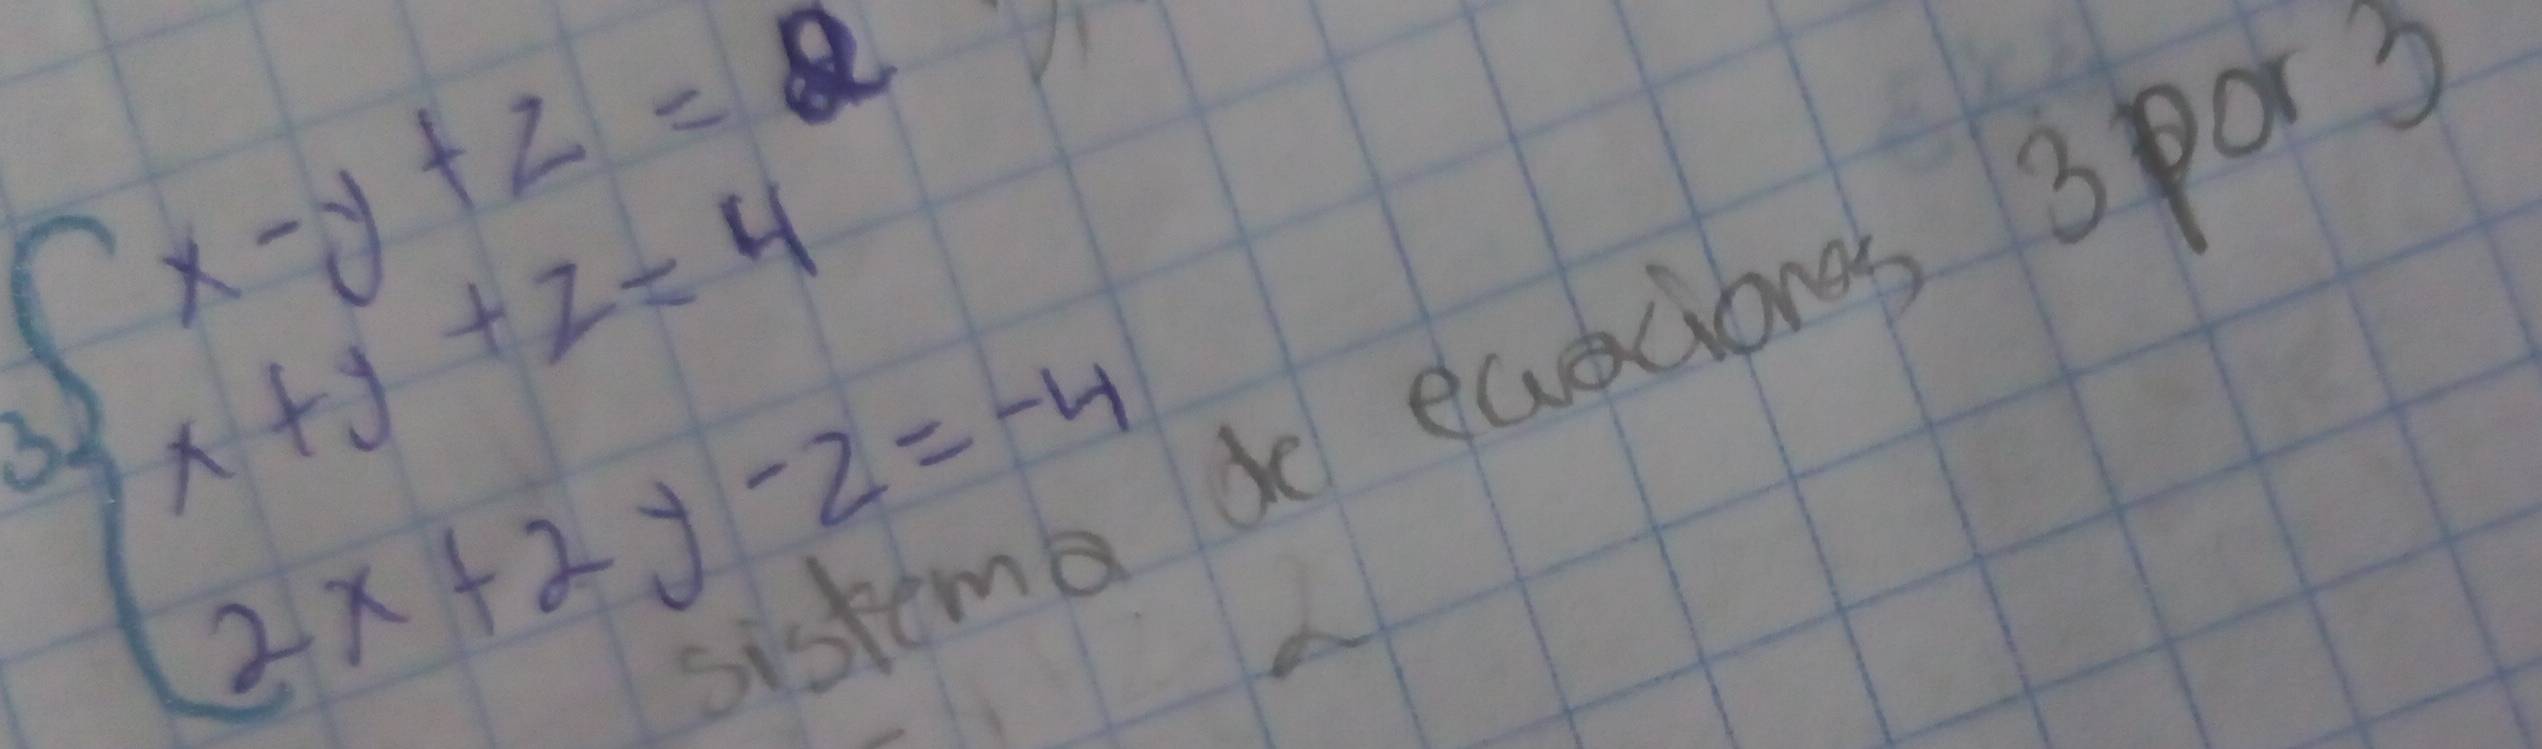 x - y + z = 2
3 x + y + z = 4
2x + 2y - z = -4
sistema de ecuaciones 3 por 3
2